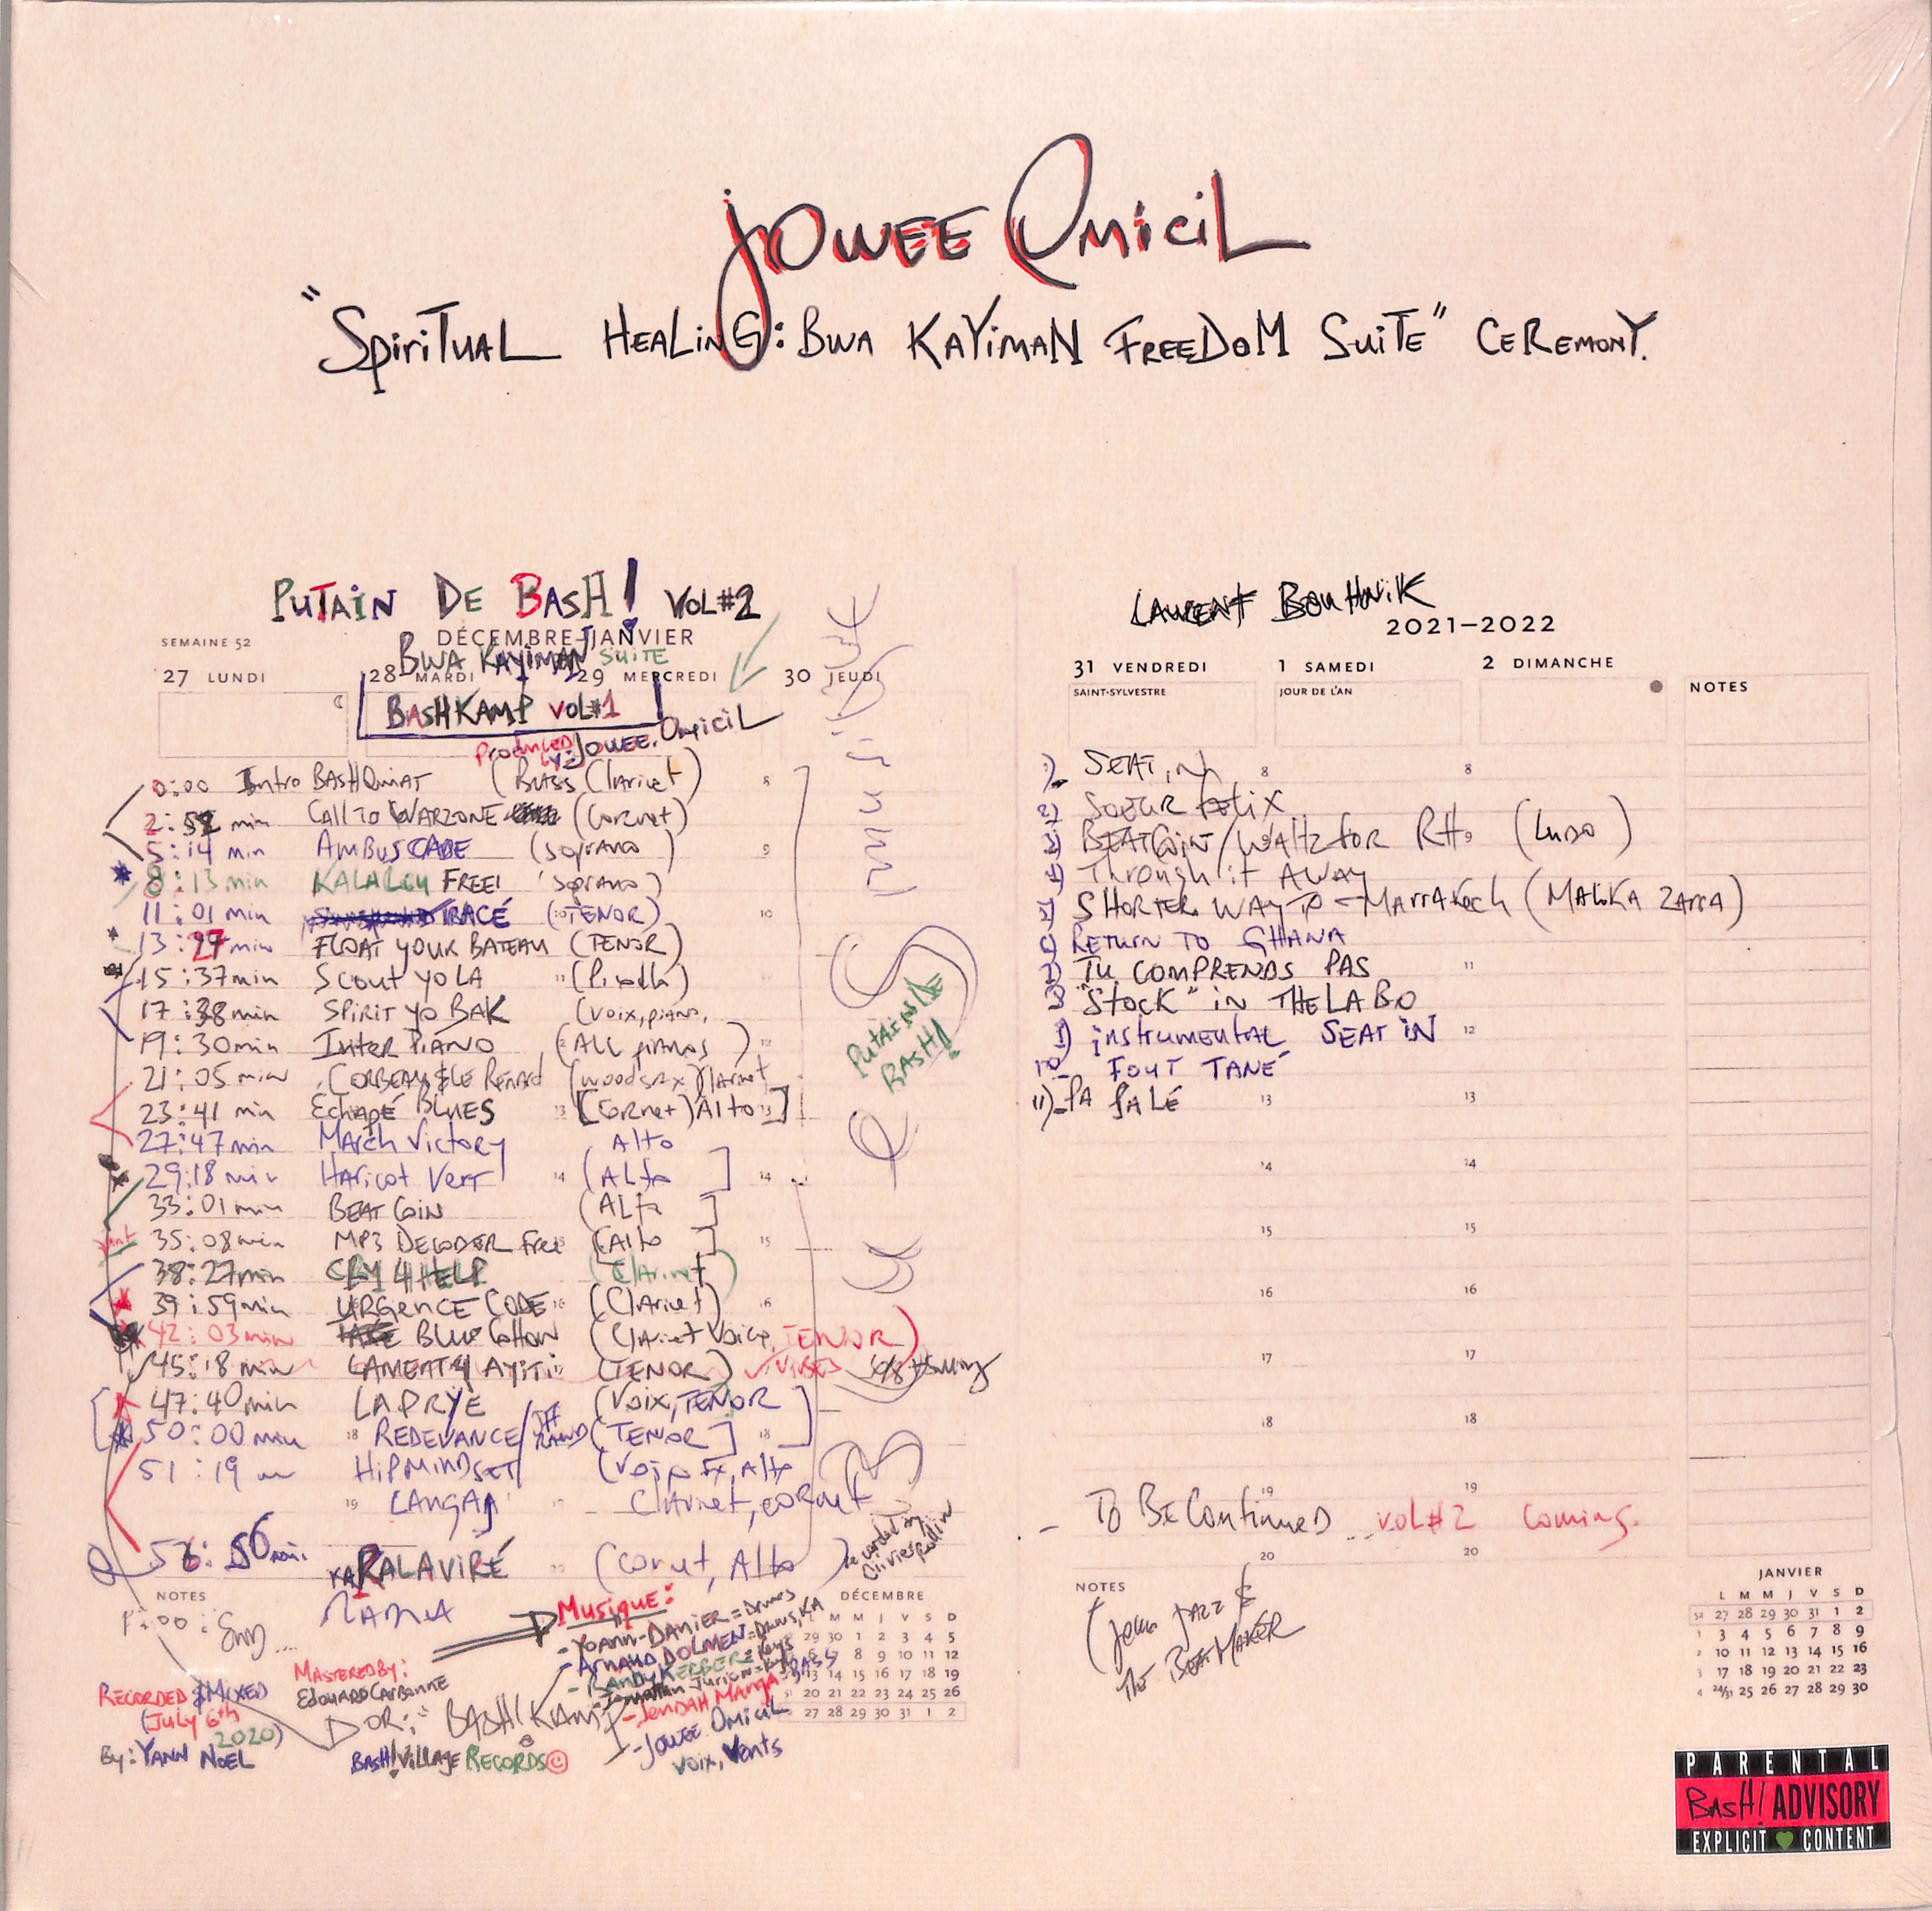 JOWEE OMICIL
"SPIRITUAL HEALING: BWA KAYIMAN FREEDOM SUITE" CEREMONY.
PUTAIN DE BASH! VOL#2
SEMAINE 52
DÉCEMBRE-JANVIER
BWA KAYIMAN SUITE
27 LUNDI
28 MARDI
29 MERCREDI
30 JEUDI
BASH KAMP VOL#1
Produced by: JOWEE. OmiciL
0:00 Intro BASH (BASS Clarinet) 8
2:52 min CALL TO WARZONE (Cornet)
5:14 min AMBUSCADE (soprano) 9
8:13 min KALALOU FREE! (soprano)
11:01 min TRACÉ (TENOR) 10
13:27 min FLOAT YOUR BATEAU (TENOR)
15:37 min SCOUT YO LA 11
17:38 min SPIRIT YO BAK (VOIX, PIANO,
19:30 min Inter PIANO (ALL pianos) 12
21:05 min CORBEAU & LE Renard
23:41 min Echapé BLUES 13 [Cornet) Alto] 13
27:47 min March Victory Alto
29:18 min Haricot Vert 14 (Alto] 14
33:01 min BEAT COIN (ALto]
35:08 min MP3 DECODER Free (Alto] 15
38:27 min CRY 4 HELP (Clarinet)
39:59 min URGENCE CODE 16 (Clarinet) 16
42:03 min BLUE COTTON (Clarinet Voice, TENOR)
45:18 min LAMENT 4 AYITI (TENOR)
47:40 min LAPRYE (Voix, TENOR
50:00 min 18 REDEVANCE/ (TENOR] 18
51:19 HIPMINDSET (Voix Fx, Alto
19 LANGAJ Clarinet, CORNET
56:50 min. KARALAVIRÉ (Cornet, Alto)
PUTAIN DE
BASH!
NOTES
Musique:
-YOANN DANIER = Drums
-Arnaud DOLMEN = Drums, KA
-RANDY KERBER = Keys
-Jonathan Jurion = Keys
-JENDAH MANGA = BASS
-JOWEE OMICIL
VOIX, Vents
MASTERED BY:
EDOUARD CARBONNE
RECORDED & MIXED
(JULY 6th
2020)
By: YANN NOEL
OR: BASH! KAMP
BASH! VILLAGE RECORDS
DÉCEMBRE
L M M J V S D
29 30 1 2 3 4 5
8 9 10 11 12
13 14 15 16 17 18 19
20 21 22 23 24 25 26
27 28 29 30 31 1 2
LAURENT BOUHNIK
2021–2022
31 VENDREDI
SAINT-SYLVESTRE
1 SAMEDI
JOUR DE L'AN
2 DIMANCHE
NOTES
SEAT IN 8 8
SOEUR FELIX
BEATCOIN/WALTZ FOR RH. (LUDO)
Through it AWAY
SHORTER WAY TO MARRAKECH (MALIKA ZARRA)
RETURN TO GHANA
TU COMPRENDS PAS 11
"STOCK" IN THE LABO
9) INSTRUMENTAL SEAT IN 12
10) FOUT TANÉ
11) PA PALÉ 13 13
14 14
15 15
16 16
17 17
18 18
19 19
- TO BE CONTINUED... VOL#2 Coming.
20 20
NOTES
The BEATMAKER
JANVIER
L M M J V S D
52 27 28 29 30 31 1 2
1 3 4 5 6 7 8 9
2 10 11 12 13 14 15 16
3 17 18 19 20 21 22 23
4 24/31 25 26 27 28 29 30
PARENTAL
BASH! ADVISORY
EXPLICIT CONTENT